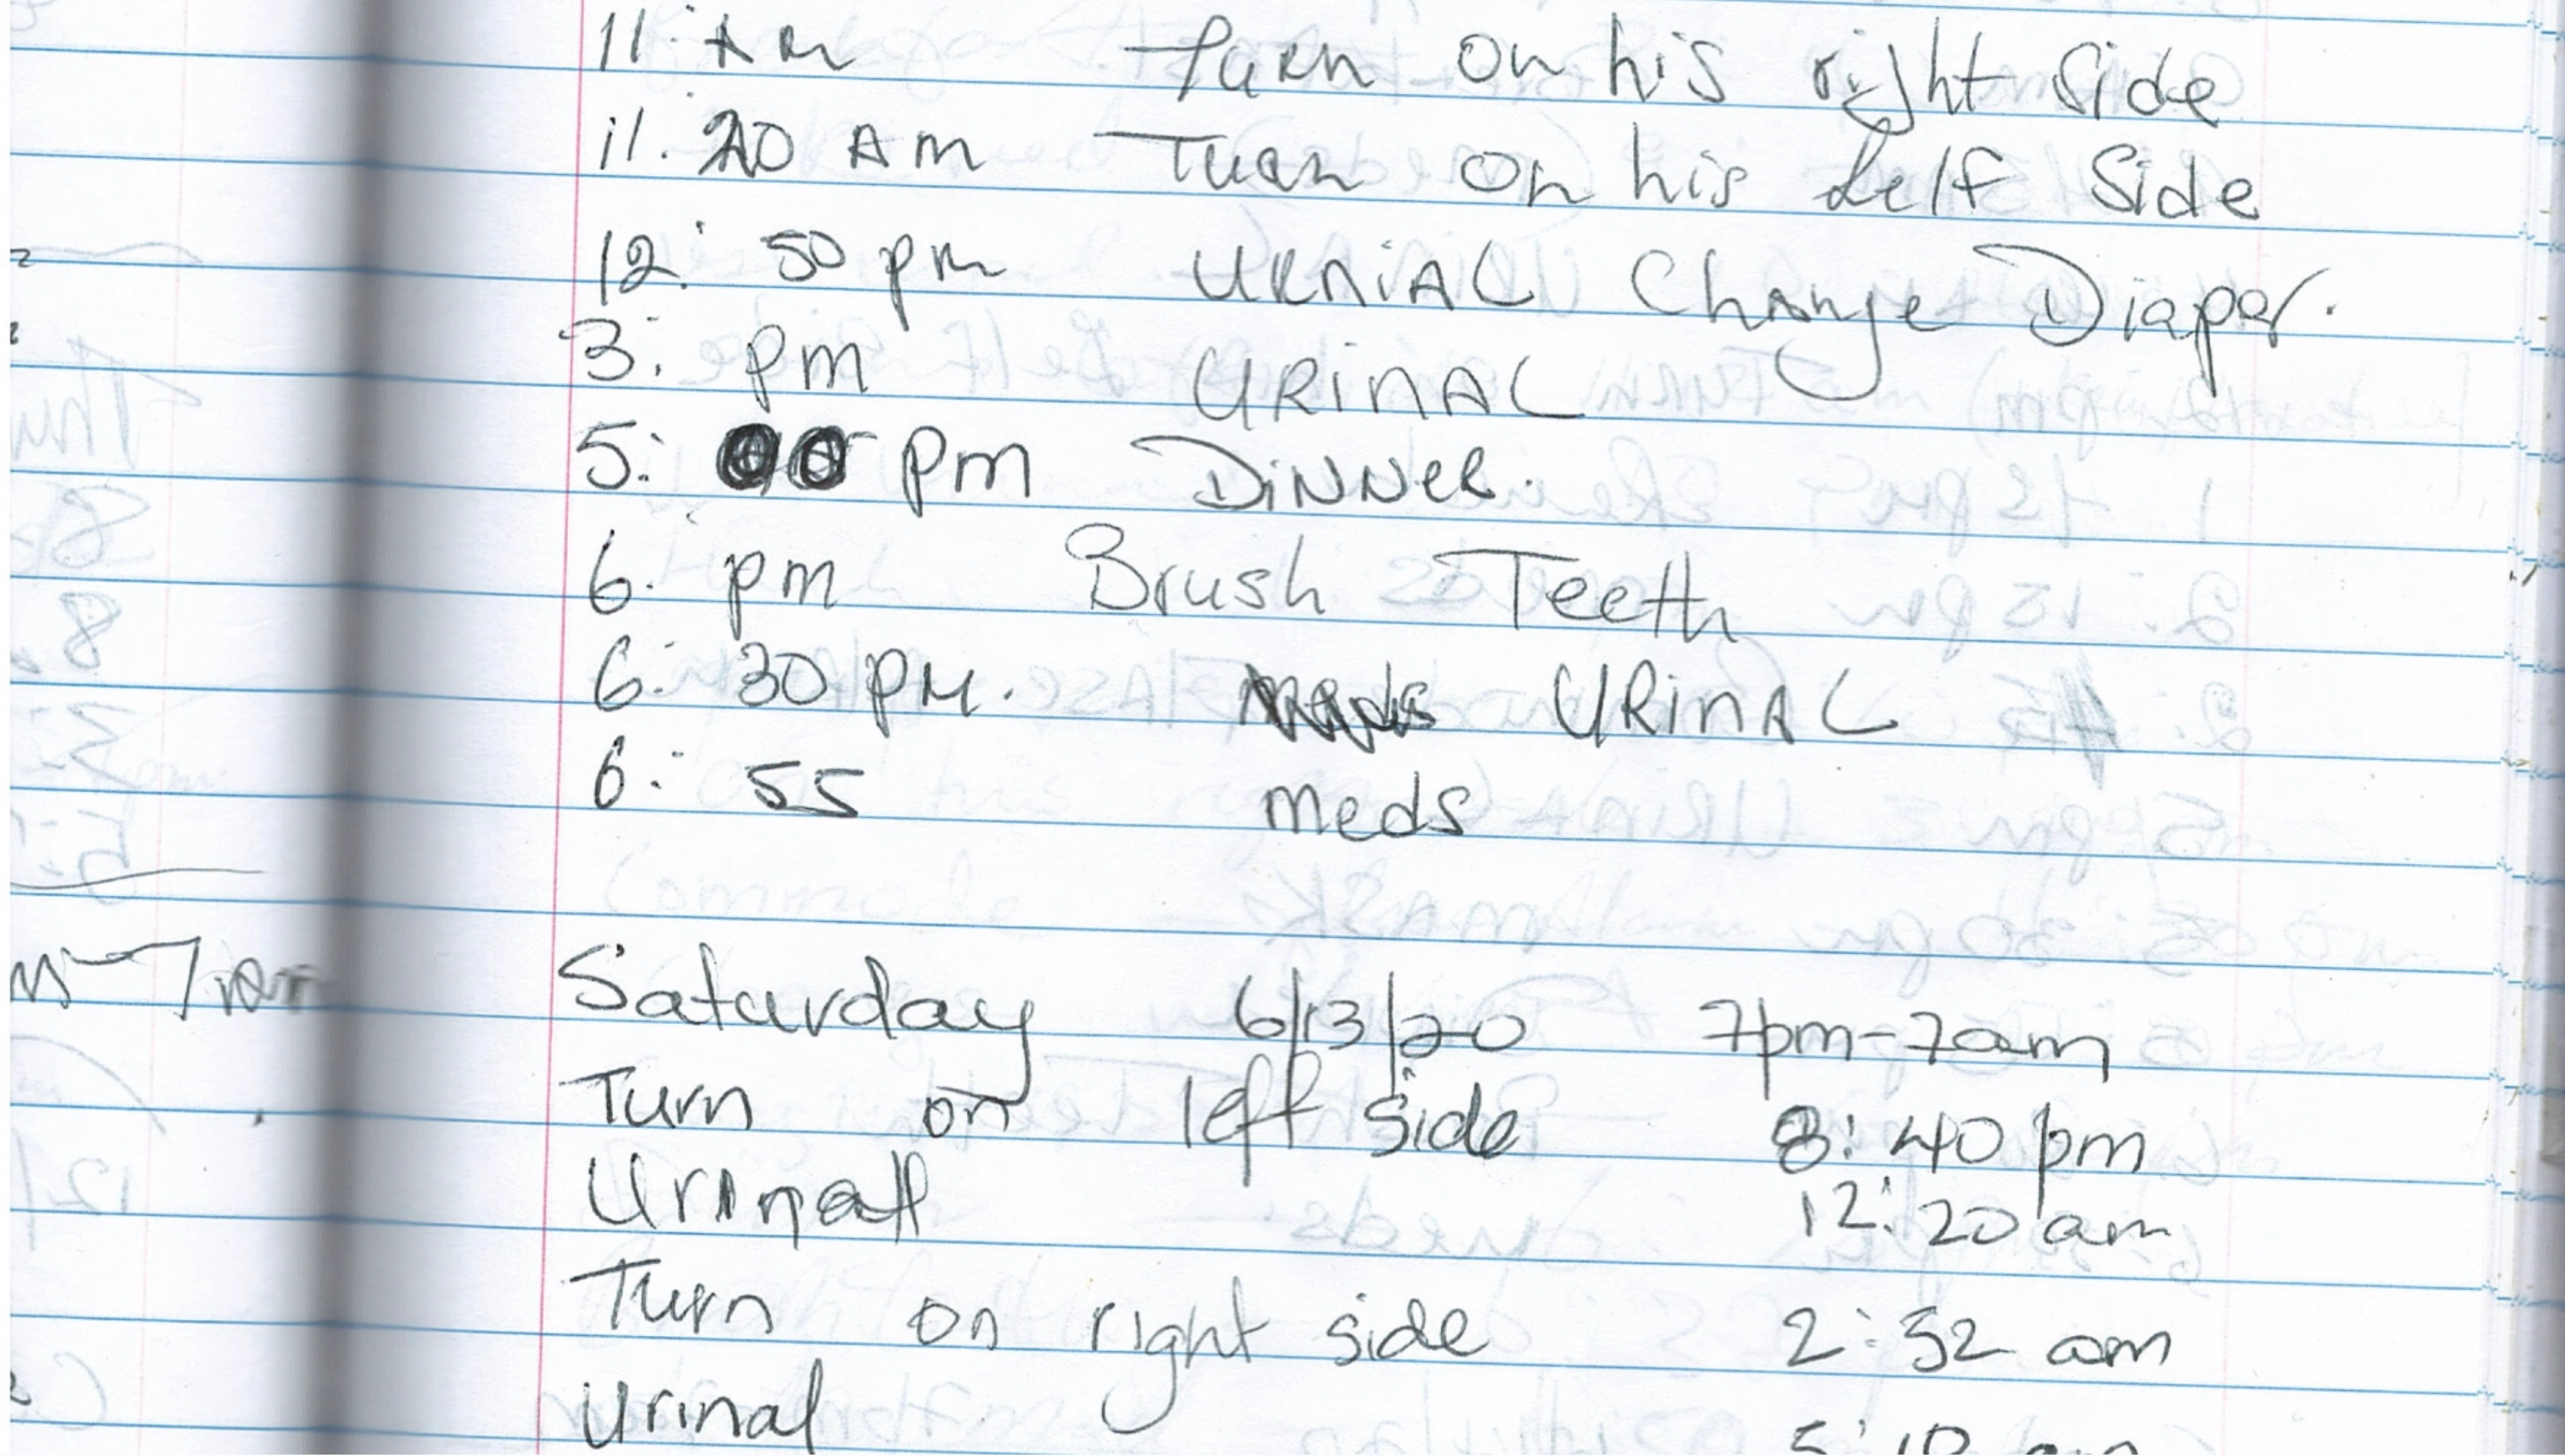 11: AM Turn on his right side
11:20 AM Turn on his Lelf Side
12:50 pm URNiAL Change Diaper.
3: pm URiNAL
5:00 pm DiNNeR.
6: pm Brush Teeth
6:30 PM. Meds URiNAL
6:55 Meds
Saturday 6/13/20 7pm-7am
Turn on left side 8:40 pm
Urinal 12:20 am
Turn on right side 2:52 am
Urinal